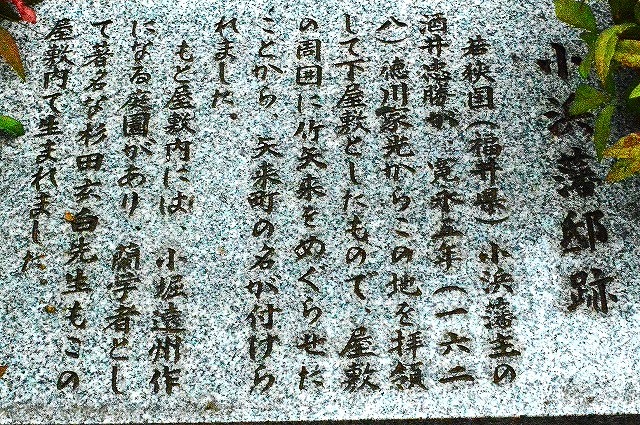 小浜藩邸跡
若狭国（福井県）小浜藩主の
酒井忠勝が、寛永五年（一六二
八）徳川家光からこの地を拝領
して下屋敷としたもので、屋敷
の周囲に竹矢来をめぐらせた
ことから、矢来町の名が付けら
れました。
もと屋敷内には、小堀遠州作
になる庭園があり、蘭学者とし
て著名な杉田玄白先生もこの
屋敷内で生まれました。